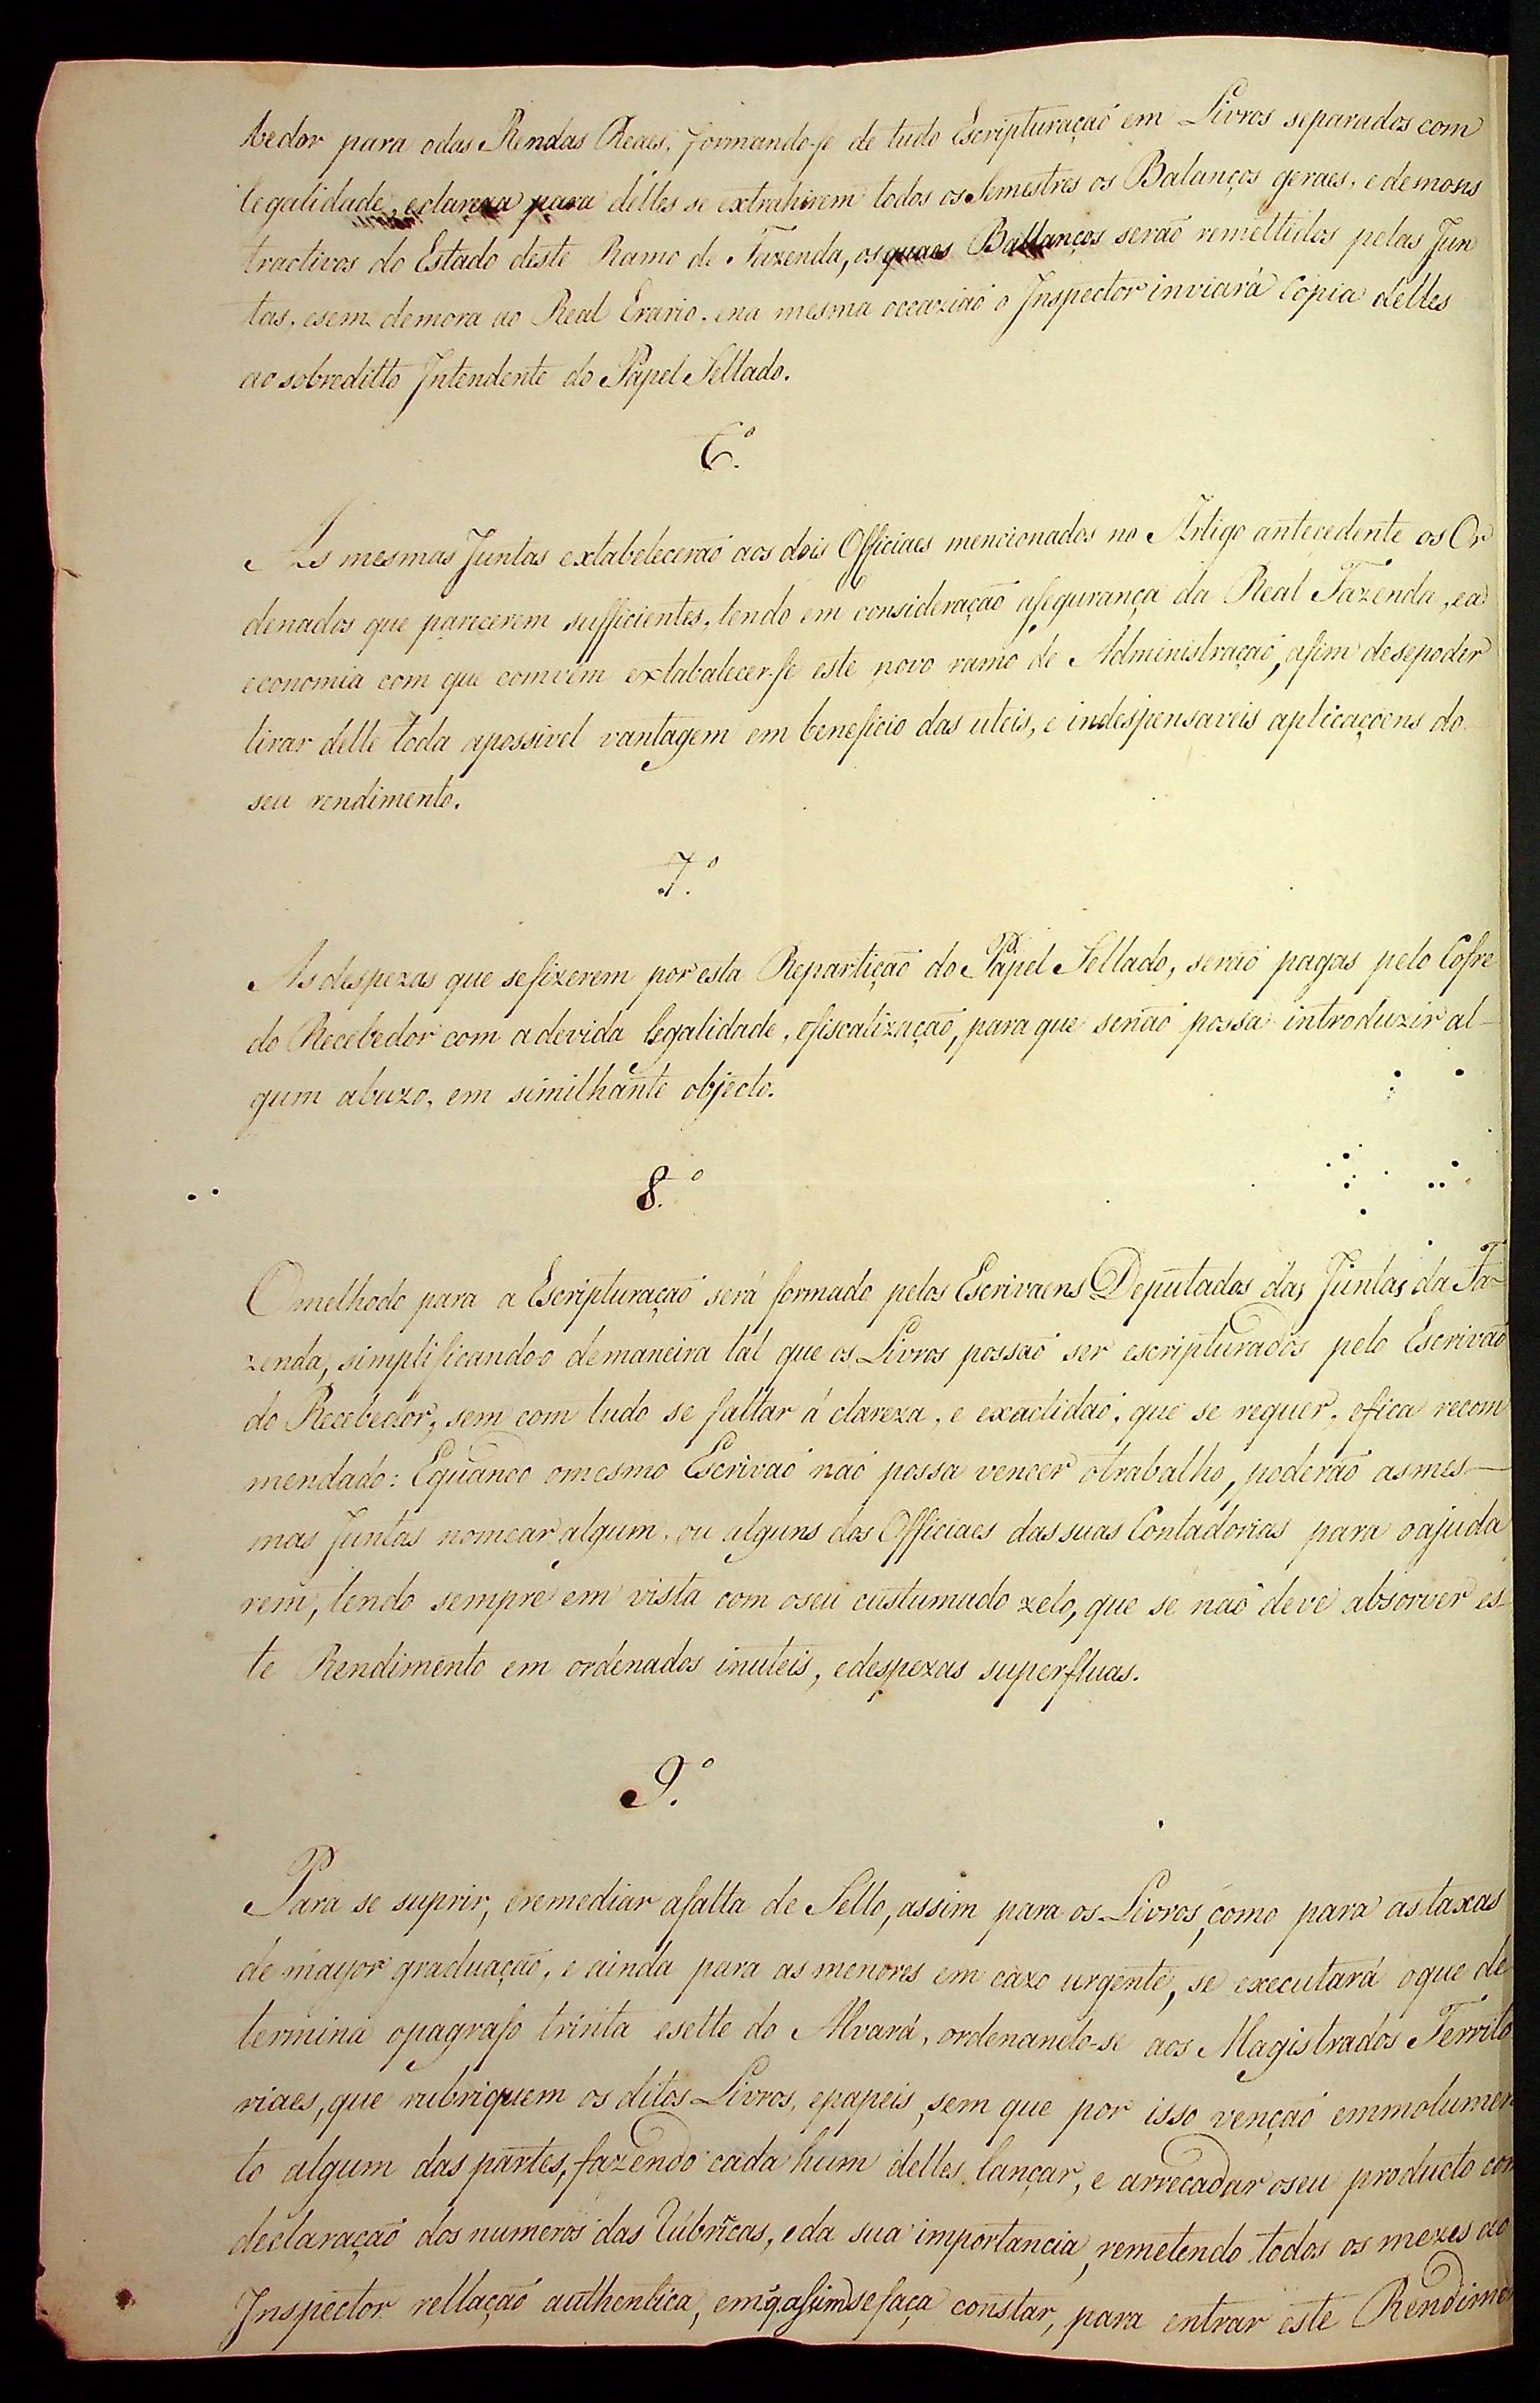 bedor para o das Rendas Reaes, formando-se de tudo Escripturação em Livros separados com
legalidade, e clareza para delles se extrahirem todos os Semestres os Balanços geraes, e demons
tractivos do Estado deste Ramo de Fazenda, os quaes Ballanços serão remettidos pelas Jun
tas, e sem demora ao Real Erario, e na mesma occazião o Inspector inviará Copia delles
ao sobreditto Intendente do Papel Sellado.
6.º
As mesmas Juntas extabelecerão aos dois Officiaes mencionados no Artigo antecedente os Or
denados que parecerem sufficientes, tendo em consideração a segurança da Real Fazenda, e a
economia com que comvem extabalecer-se este novo ramo de Administração, afim de se poder
tirar delle toda a possivel vantagem em beneficio das uteis, e indespensaveis aplicaçoens do
seu rendimento.
7.º
As despezas que se fizerem por esta Repartição do Papel Sellado, serão pagas pelo Cofre
do Recebedor com a devida legalidade, e fiscalização, para que se não possa introduzir al-
gum abuzo, em similhante objecto.
8.º
O melhodo para a Escripturação será formado pelos Escrivaens Deputados das Juntas da Fa-
zenda, simplificando-o de maneira tal que os Livros possão ser escripturados pelo Escrivão
do Recebedor, sem com tudo se faltar á clareza, e exactidão, que se requer, e fica recom
mendado: E quando o mesmo Escrivão não possa vencer o trabalho, poderão as mes-
mas Juntas nomear algum, ou alguns dos Officiaes das suas Contadorias para o ajuda
rem, tendo sempre em vista com o seu custumado zelo, que se não deve absorver es-
te Rendimento em ordenados inuteis, e despezas superfluas.
9.º
Para se suprir, e remediar a falta de Sello, assim para os Livros, como para as taxas
de mayor graduação, e ainda para as menores em cazo urgente, se executará o que de
termina o pagrafo trinta e sette do Alvará, ordenando-se aos Magistrados Territo
riaes, que rubriquem os ditos Livros, e papeis, sem que por isso venção emmolumen
to algum das partes, fazendo cada hum delles lançar, e arrecadar o seu producto com
declaração dos numeros das Rúbricas, e da sua importancia, remetendo todos os mezes ao
Inspector rellação authentica, em q. assim se faça constar, para entrar este Rendimen